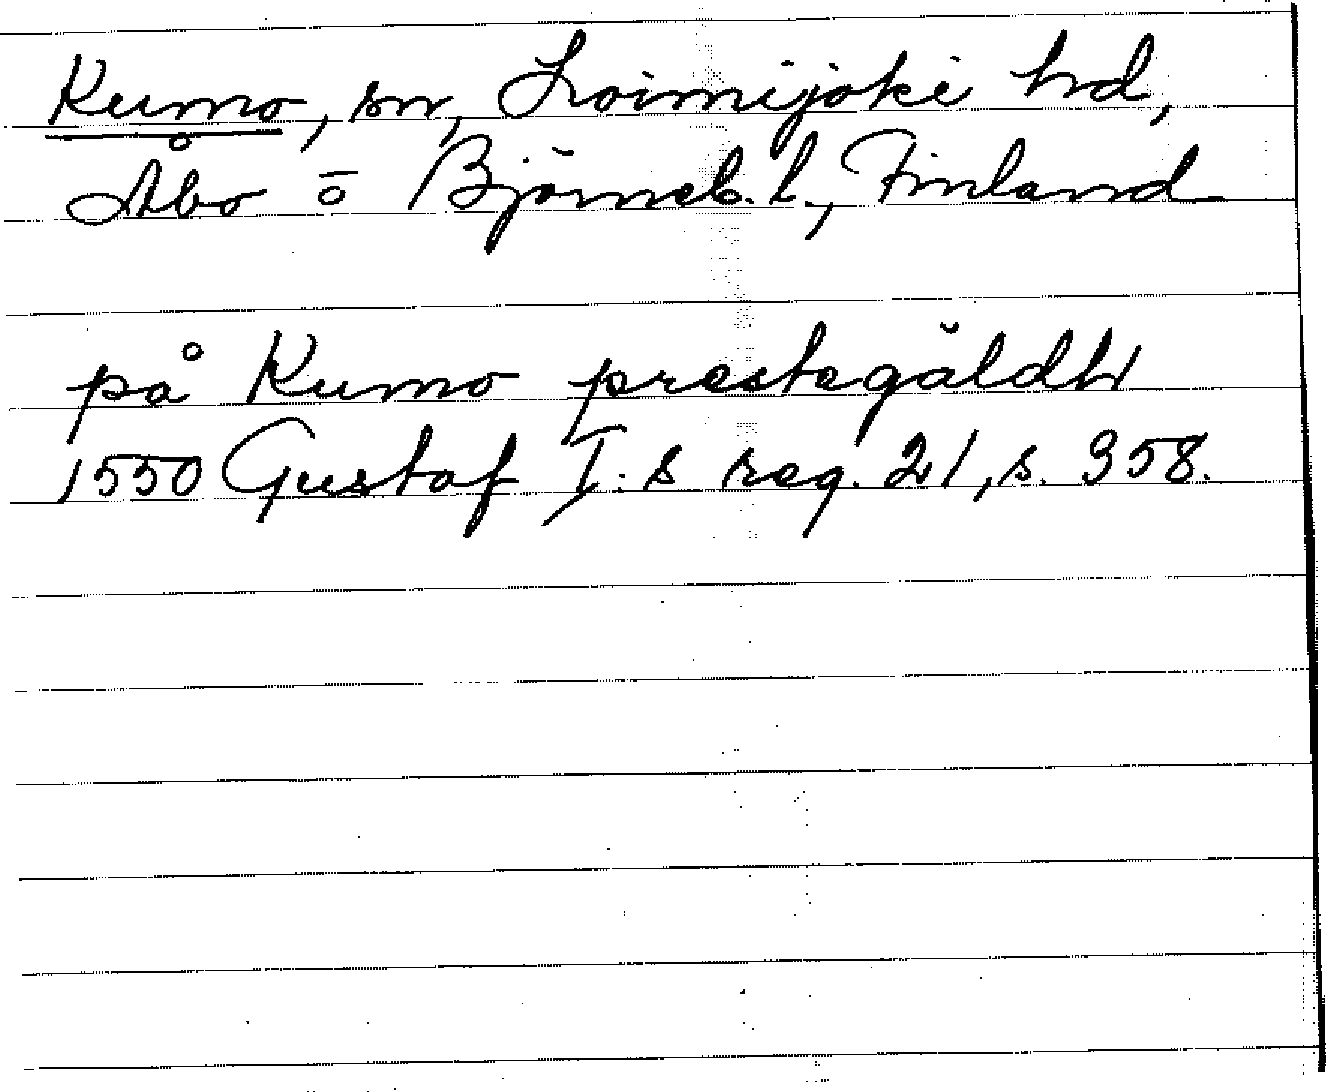 Kumo, sn, Loimijoki hd,
Åbo o Björneb. l., Finland
på Kumo prestegäldh
1550 Gustaf I:s reg. 21, s. 358.